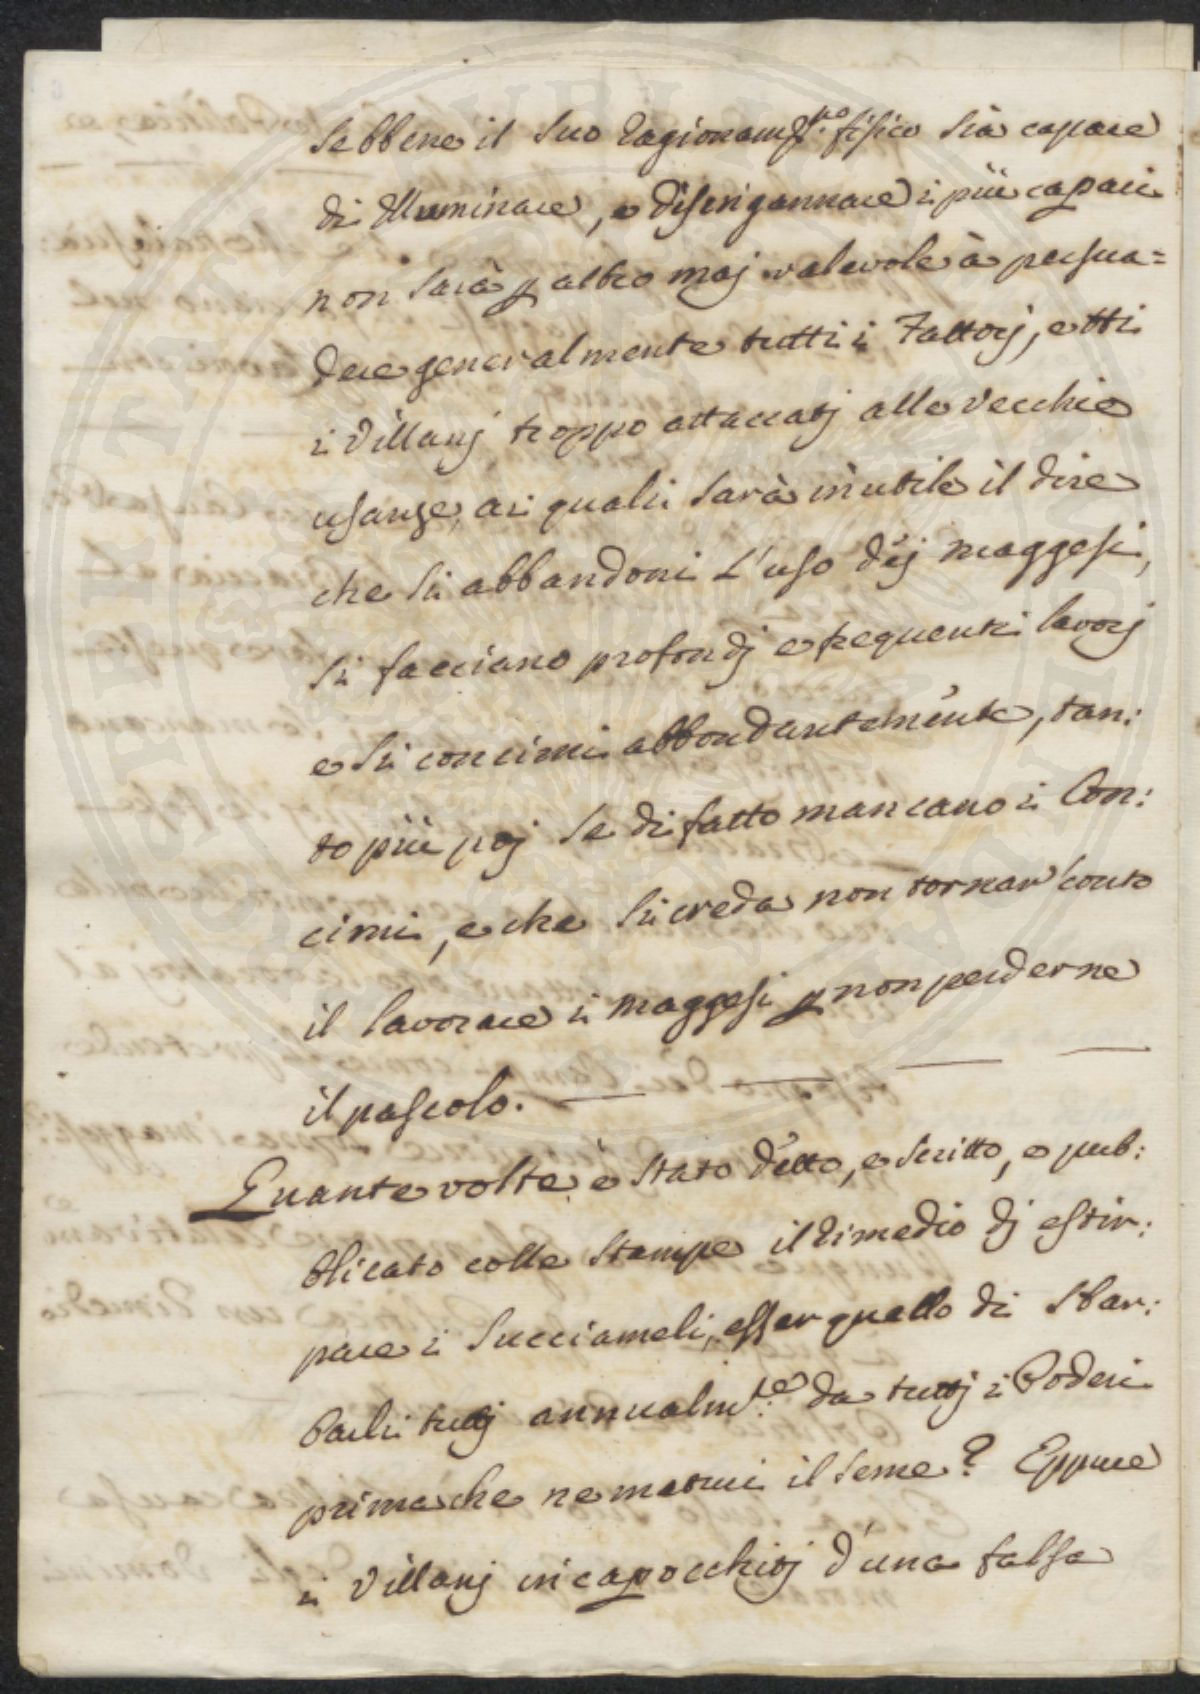 Sebbene il Suo Ragionam:to fisico Sia capace
di Illuminare, e disingannare i più capaci
non Sarà p altro maj valevole à persua=
dere generalmente tutti i Fattorj, e tti
i Villanj troppo attaccatj alle Vecchie
usanze, ai quali Sarà inutile il dire
che Si abbandoni L'uso dej maggesi,
Si facciano profondj e frequenti lavorj
e Si concimi abbondantemente, tan:
to più poj Se di fatto mancano i Con:
cimi, e che Si creda non tornar conto
il lavorare i maggesi p non perderne
il pascolo.
Quante volte è Stato detto, e Scritto, e pub:
blicato colle Stampe il Rimedio dj estir:
pare i Succiameli, esser quello di Sbar:
barli tuttj annualm:te da tuttj i Poderi
prima che ne maturi il Seme? Eppure
i Villanj incapocchitj d'una falsa